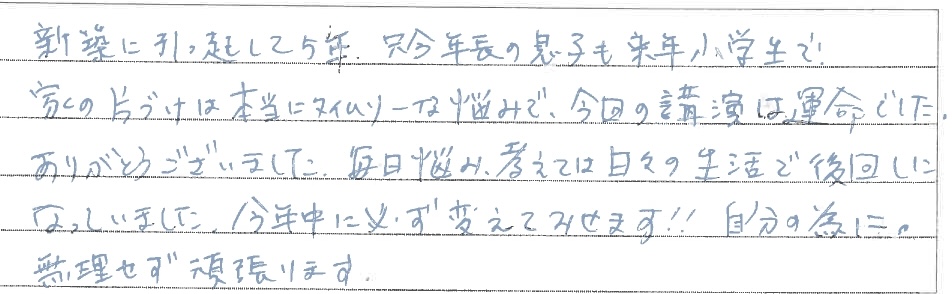 新築に引っ起しして5年. 只今年長の息子も来年小学生で.
家の片づけは本当にタイムリーな悩みで、今回の講演は運命でした。
ありがとうございました. 毎日悩み、考えては日々の生活で後回しに
なっていました. 今年中に必ず変えてみせます!! 自分の為に。
無理せず頑張ります.